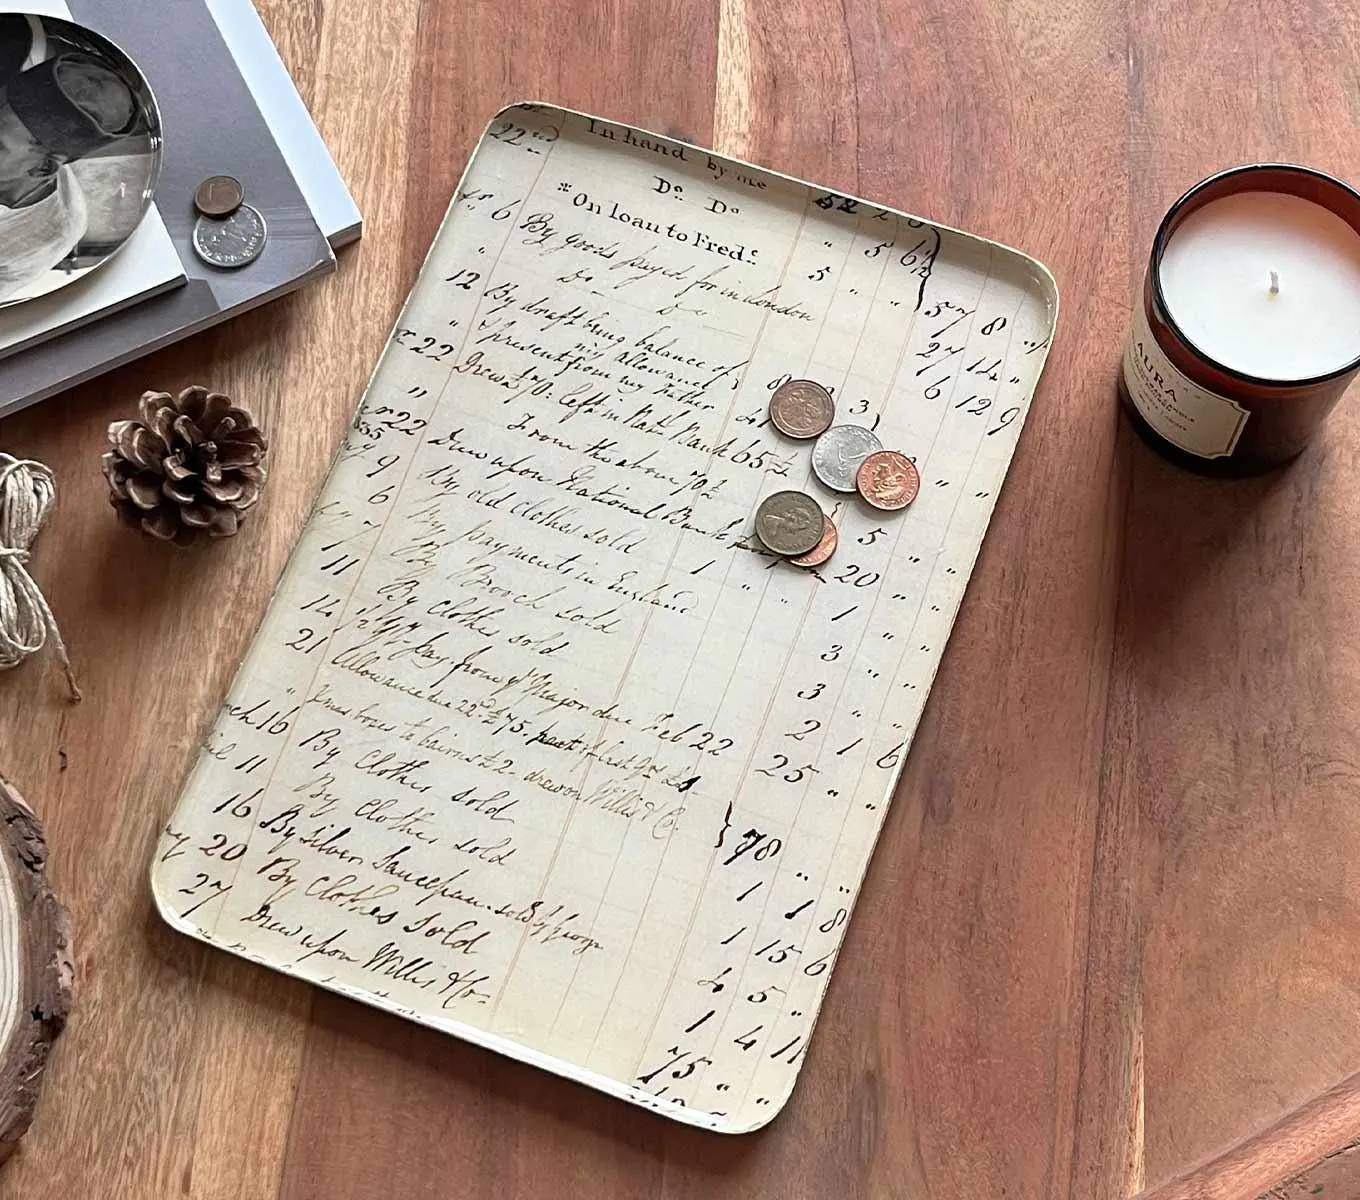 22nd In hand by me
Do. Do. 52 2 3
* On loan to Fred: " 5 6½
6 By goods payed for in London 5 " " 57 8 "
" Do - Do 27 14 "
12 By draft being balance of my allowance 6 12 9
" present from my Father
22 Drew £70: left in Natl Bank 65 " "
" From the above 70£ 5 " "
22 Drew upon National Bank 20 " "
9 By old Clothes sold 1 " "
6 By payments in England 3 " "
" By Brooch sold 3 " "
11 By Clothes sold 2 1 6
14 pay from Major due Feb 22 25 " "
21 Allowance due 22d £75. part of last
" Xmas boxes to bairns £2 - drew on Willis & Co. 78 " "
16 By Clothes sold 1 1 8
11 By Clothes sold 1 15 6
16 By Silver Saucepan sold 4 5 "
20 By Clothes Sold 1 4 11
27 Drew upon Willis & Co. 75 " "
AURA